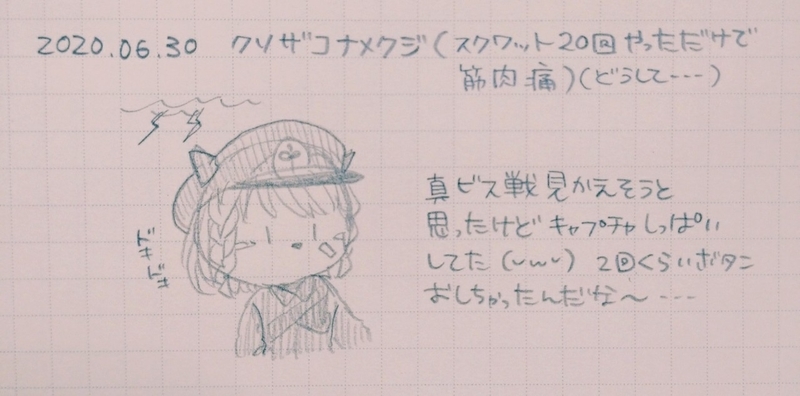 2020.06.30 クソザコナメクジ(スクワット20回やっただけで
筋肉痛)(どうして---)
ドキ
ドキ
真ビス戦見かえそうと
思ったけどキャプチャしっぱい
してた(ᴗωᴗ) 2回くらいボタン
おしちゃったんだな〜---